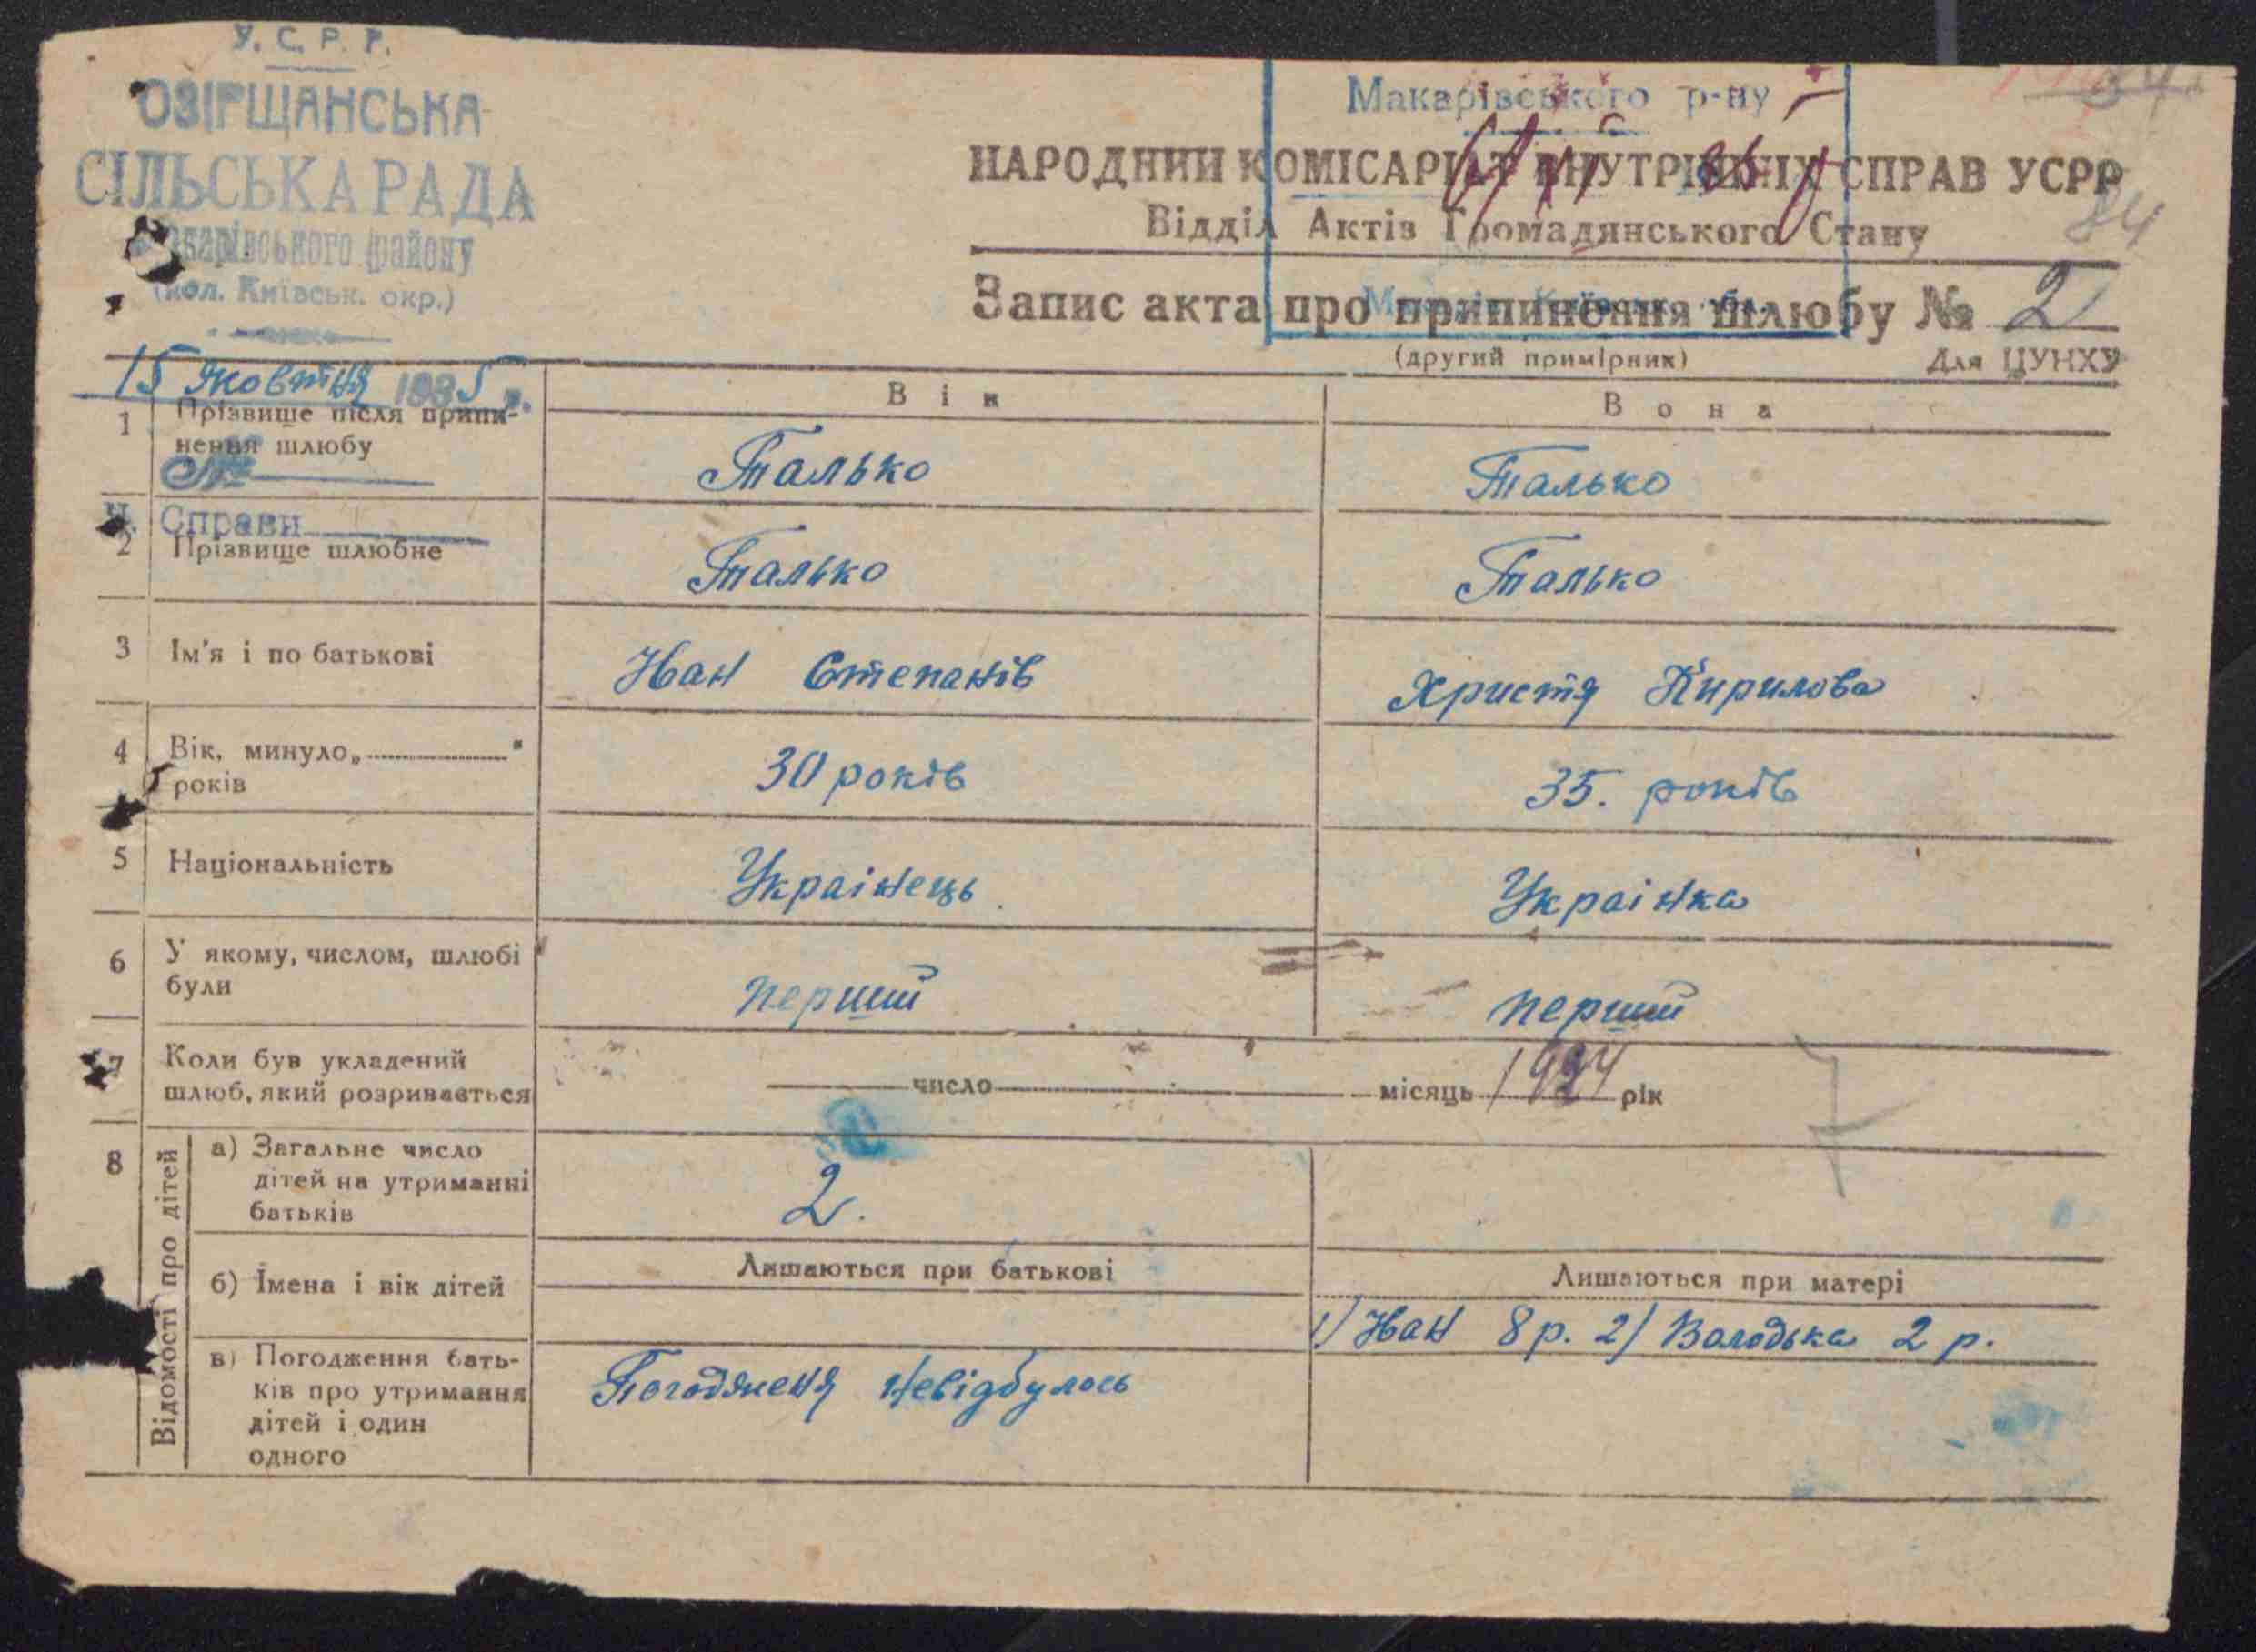 У. С. Р. Р.
ОЗІРЩАНСЬКА
СІЛЬСЬКА РАДА
Макарівського району
(кол. Київськ. окр.)
15 жовтня 1935 р.
№
Справи
Макарівського р-ну
НАРОДНИЙ КОМІСАРІАТ ВНУТРІШНІХ СПРАВ УСРР
84
Відділ Актів Громадянського Стану
Запис акта про припинення шлюбу № 2
(другий примірник) Для ЦУНХУ
Він Вона
1 Прізвище після припинення шлюбу Талько Талько
2 Прізвище шлюбне Талько Талько
3 Ім'я і по батькові Іван Степанів Христя Кирилова
4 Вік, минуло „ “ років 30 років 35. років
5 Національність Українець Українка
6 У якому, числом, шлюбі були перший перший
7 Коли був укладений шлюб, який розривається число місяць 1924 рік
7
8 Відомості про дітей
а) Загальне число дітей на утриманні батьків 2.
б) Імена і вік дітей Лишаються при батькові Лишаються при матері
1) Іван 8 р. 2) Володька 2 р.
в) Погодження батьків про утримання дітей і один одного Погодженя невідбулось